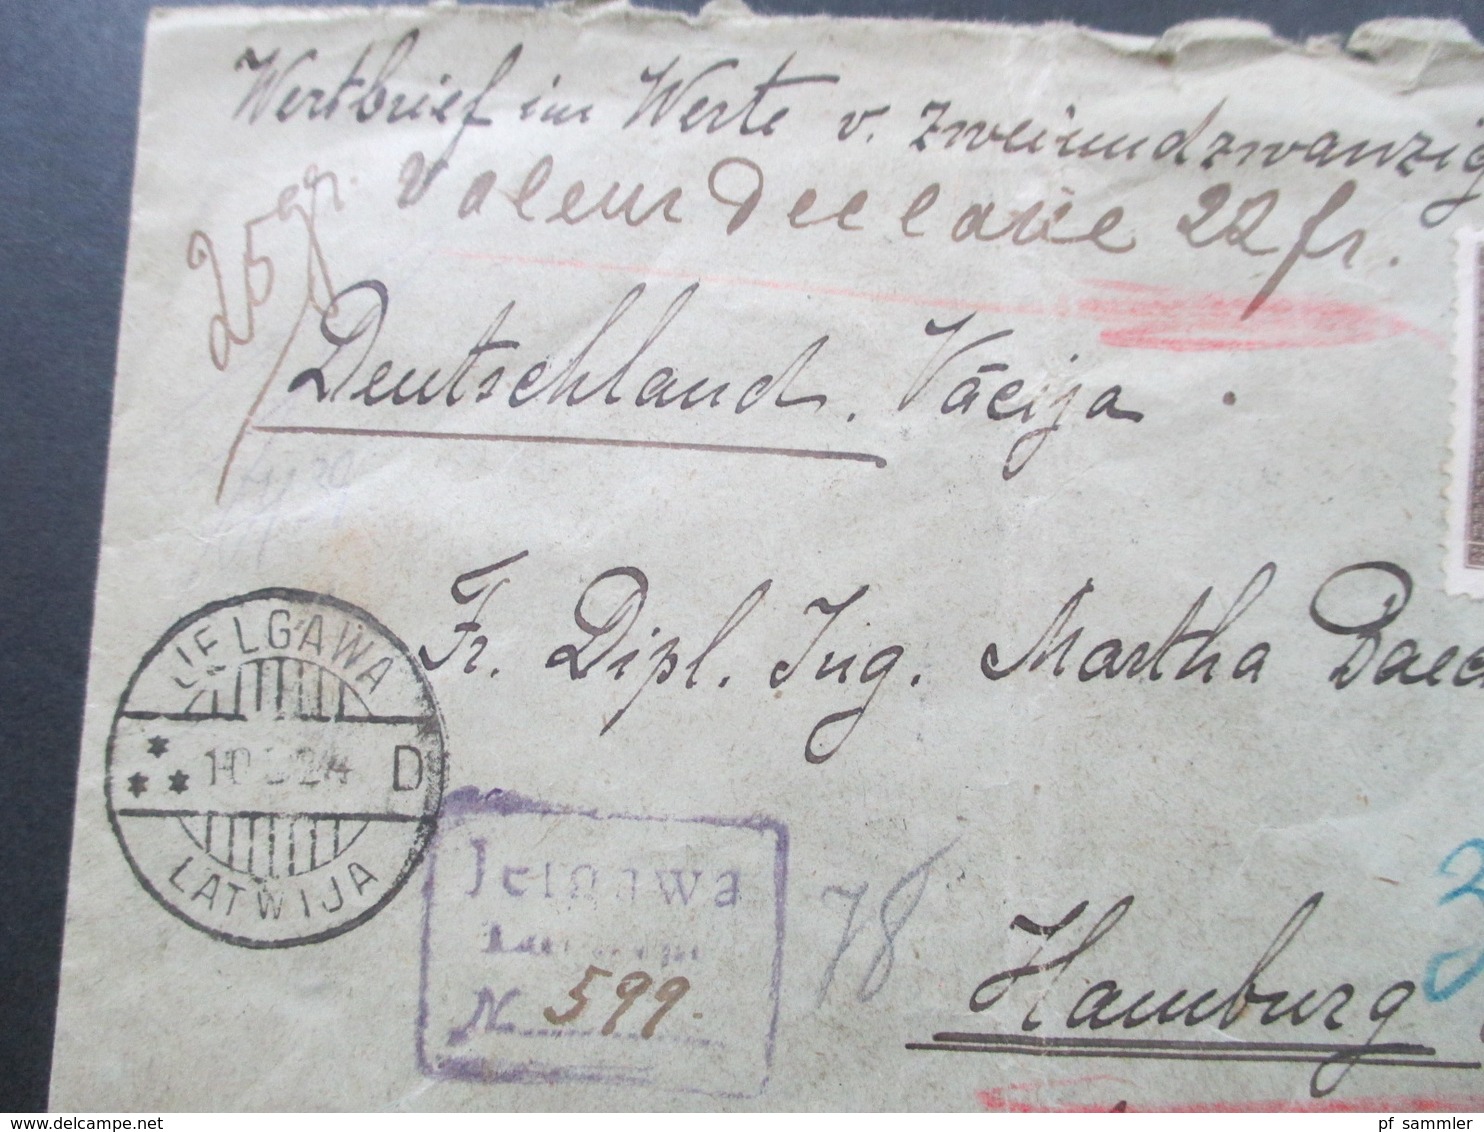 Wertbrief im Werte v. zweiundzwanzig
25 gr. Valeur declarée 22 fr.
Deutschland. Vācija
Fr. Dipl. Ing. Martha
JELGAWA
10 24 D
LATWIJA
Jelgawa
N 599.
78
Hamburg
pf_sammler